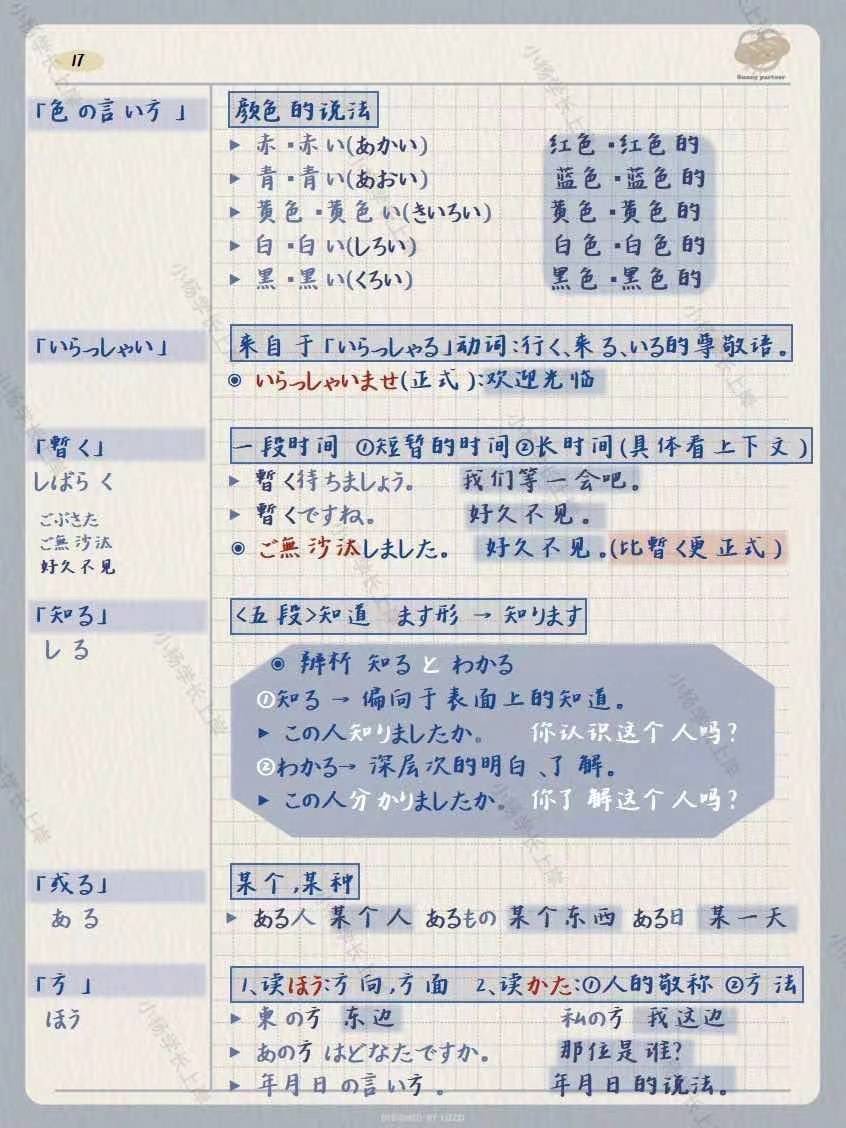 17
Sunny partner
「色の言い方」 颜色的说法
▶ 赤·赤い(あかい) 红色·红色的
▶ 青·青い(あおい) 蓝色·蓝色的
▶ 黄色·黄色い(きいろい) 黄色·黄色的
▶ 白·白い(しろい) 白色·白色的
▶ 黑·黑い(くろい) 黑色·黑色的
「いらっしゃい」 来自于「いらっしゃる」动词:行く、来る、いる的尊敬语。
◉ いらっしゃいませ(正式):欢迎光临
「暫く」 一段时间 ①短暂的时间②长时间(具体看上下文)
しばらく ▶ 暫く待ちましょう。 我们等一会吧。
▶ 暫くですね。 好久不见。
ごぶさた
ご無沙汰 ◉ ご無沙汰しました。 好久不见。(比暫く更正式)
好久不见
「知る」 <五段>知道 ます形 → 知ります
しる
◉ 辨析 知る と わかる
①知る → 偏向于表面上的知道。
▶ この人知りましたか。 你认识这个人吗?
②わかる→ 深层次的明白、了解。
▶ この人分かりましたか。 你了解这个人吗?
「或る」 某个,某种
ある ▶ ある人 某个人 あるもの 某个东西 ある日 某一天
「方」 1、读ほう:方向,方面 2、读かた:①人的敬称 ②方法
ほう ▶ 東の方 东边 私の方 我这边
▶ あの方はどなたですか。 那位是谁?
▶ 年月日の言い方。 年月日的说法。
DESIGNED BY LIZZI
小杨学长上岸